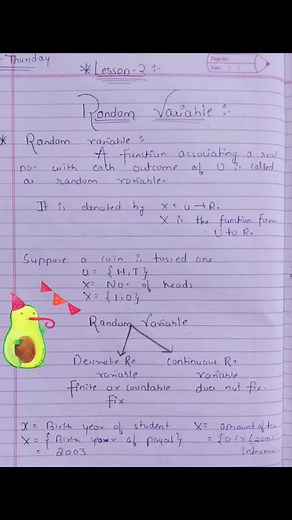 Thursday
* Lesson-2 :-
Page No.
Date
Random Variable :-
* Random variable :
A function associating a real
no. with each outcome of U is called
as random variable.
It is denoted by X : U → R.
X is the function from
U to R.
Suppose a coin is tossed one
U = {H,T}
X = No of heads
X = {1,0}
Random Variable
Descrete R.
variable
finite or countable
fix
continuous R.
variable
does not fix.
X = Birth year of student
X = {Birth year of payal}
= 2003
X = amount of